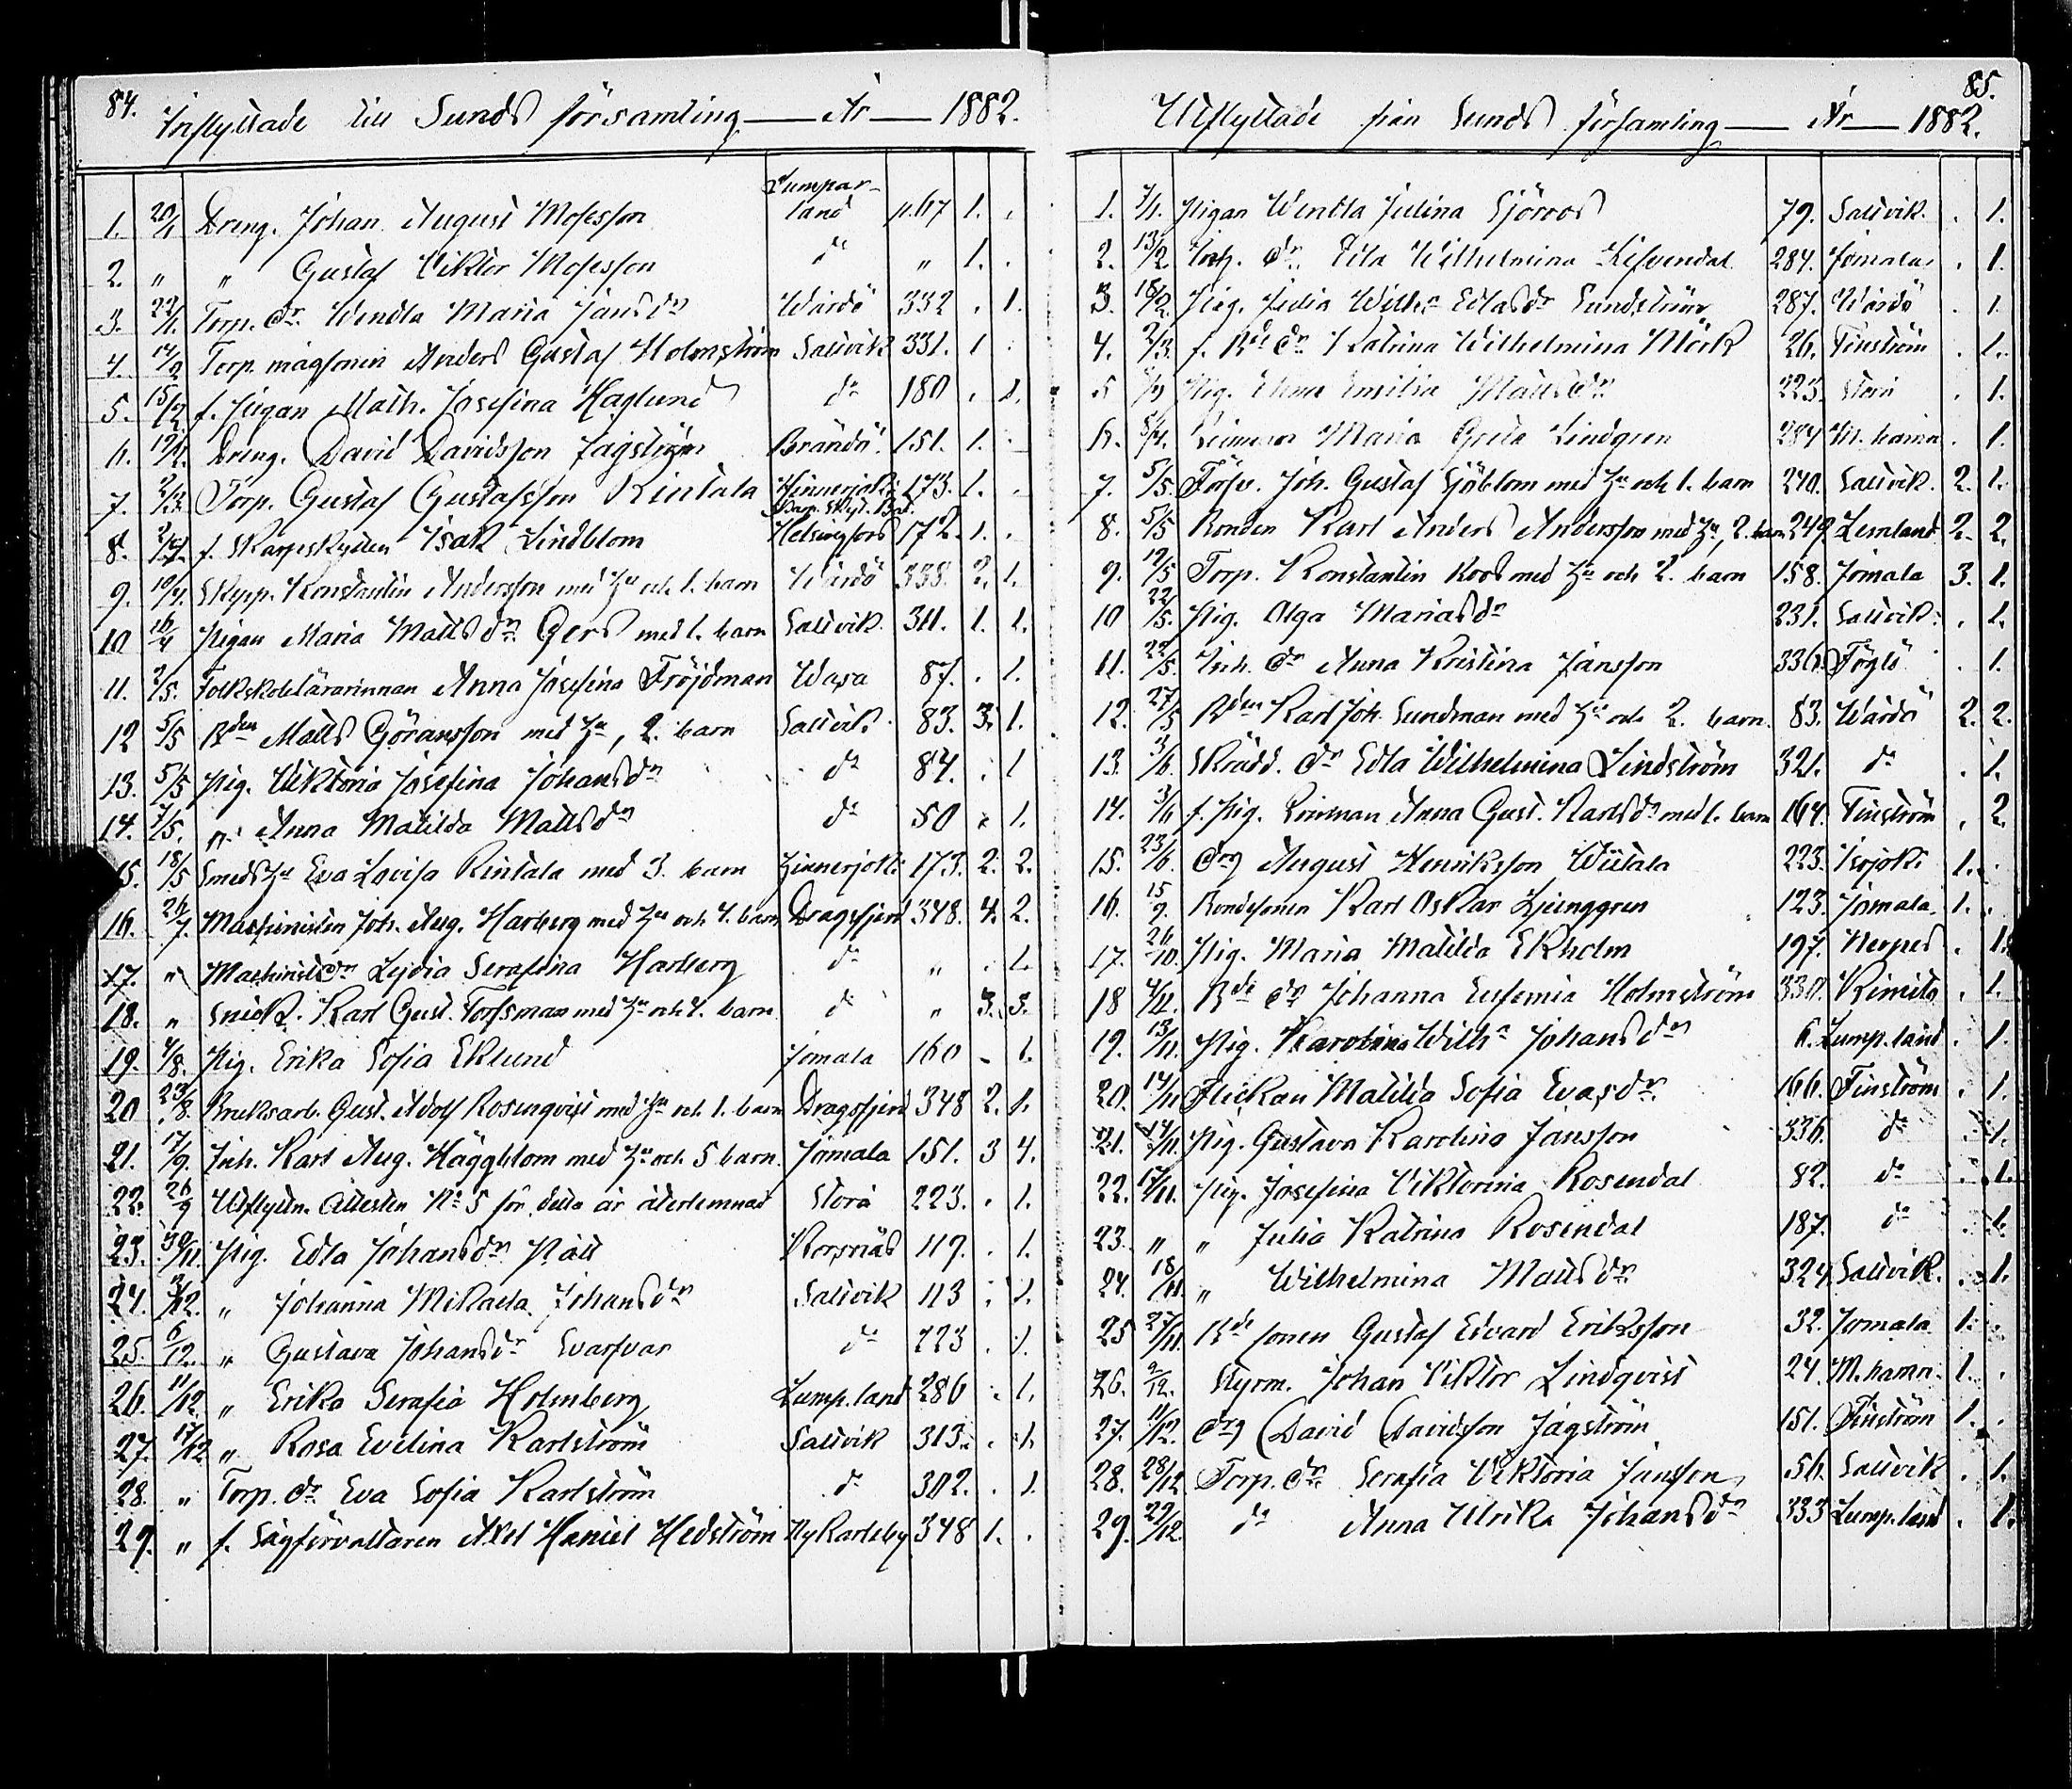 84.
Inflyttade till Sunds församling — År — 1882.
1. 20/1 Dreng. Johan August Mosesson Lumparland p. 67 1. .
2. " " Gustaf Viktor Mosesson do " 1. .
3. 22/1. Torp. dr. Wendla Maria Jansdr Wårdö 332 . 1.
4. 14/2 Torp. mågsonen Anders Gustaf Holmström Saltvik 331. 1 .
5. 15/2 f. Pigan Math. Josefina Haglund do 180 . 1.
6. Dreng. David Davidsson Jagström Brändö. 151. 1. .
7. 2/3. Torp. Gustaf Gustafsson Rintala Hinnerjoki 173. 1. .
8. f. Skarpskytten Isak Lindblom Helsingfors 172. 1. .
9. 10/4. Skepp. Konstantin Andersson med hu och 1. barn Wårdö 338. 2. 1.
10 16/4 Pigan Maria Mattsdr Gers med 1. barn Saltvik 311. 1. 1.
11. 2/5. Folkskolelärarinnan Anna Josefina Fröjdman Wasa 87. . 1.
12 5/5 Bden Matts Göransson med hu, 2. barn Saltvik 83. 3. 1.
13. 5/5 Pig. Viktoria Josefina Johansdr do 84. . 1
14. 7/5. " Anna Matilda Mattsdr do 50 . 1.
15. 18/5 Smeds hu Eva Lovisa Rintala med 3. barn Hinnerjoki 173. 2. 2.
16. 26/7. Maskinisten Joh. Aug. Harberg med hu och 4. barn Dragsfjerd 348. 4. 2.
17. " Machinistdr Lydia Serafina Harberg do " . 1.
18. " Snick. Karl Gust. Forssman med hu och 4. barn do " 3. 3.
19. 4/8. Pig. Erika Sofia Eklund Jomala 160 - 1.
20 23/8. Bruksarb. Gust. Adolf Rosenqvist med hu och 1. barn Dragsfjerd 348 2. 1.
21. 17/9. Inh. Karl Aug. Häggblom med hu och 5 barn. Jomala 151. 3 4.
22. 26/9 Utflyttn. Attesten No 5 för detta år återlemnad Storå 223. . 1.
23. 30/11. Pig. Edla Johansdr Rätt Korsnäs 119. . 1.
24. 2/12. " Johanna Mikaela Johansdr Saltvik 113 . 1.
25. 6/12. " Gustava Johansdr Svarfvar do 223 . 1.
26. 11/12. " Erika Serafia Holmberg Lump.land 286 . 1.
27. 17/12 " Rosa Evelina Karlström Saltvik 313. . 1.
28. " Torp. dr Eva Sofia Karlström do 302. . 1.
29. " f. Sågförvaltaren Axel Haniel Hedström NyKarleby 348 1. .
85.
Utflyttade från Sunds församling — År — 1882.
1. Pigan Wendla Julina Sjöroos 79. Saltvik. . 1.
2. 13/2. Inh. dr. Edla Wilhelmina Lifvendal 284. Jomala . 1.
3. 18/2. Pig. Julia Wilh:a Edlasdr Sundström 287. Wårdö . 1.
4. 2/3. f. Bde dr Katrina Wilhelmina Mörk 26. Finström . 1.
5 Pig. Emilia Mattsdr 223. Storå . 1.
6. 5/4. Maria Greta Lindgren 284 M.hamn . 1.
7. 5/5. Torp. Joh. Gustaf Sjöblom med hu och 1. barn 240. Saltvik. 2. 1.
8. 5/5 Bonden Karl Anders Andersson med hu, 2. barn 249 Lemland 2. 2.
9. 12/5 Torp. Konstantin Roos med hu och 2. barn 158. Jomala 3. 1.
10 22/5. Pig. Olga Mariasdr 231. Saltvik . 1.
11. 22/5. Inh. dr Anna Kristina Jansson 336. Föglö . 1.
12. 27/5 Bden Karl Joh. Sundman med hu och 2. barn. 83. Wårdö 2. 2.
13. 3/6. Skrädd. dr Edla Wilhelmina Lindström 321. do . 1.
14. 3/6 f. Pig. Anna Gust. Karlsdr med 1. barn 164. Finström . 2.
15. 23/6. Drg August Henriksson Wiitala 223. Isojoki 1. .
16. 15/9. Bondesonen Karl Oskar Ljunggren 123. Jomala. 1. .
17. 26/10. Pig. Maria Matilda Ekholm 197. Nerpes . 1.
18 4/11. Bde dr Johanna Eufemia Holmström 330. Kimito . 1.
19. 13/11. Pig. Karolina Wilh:a Johansdr 6. Lump.land . 1.
20. 14/11 Flickan Matilda Sofia Evasdr. 166. Finström . 1.
21. 14/11. Pig. Gustava Karolina Jansson 336. do . 1.
22. 17/11. Pig. Josefina Viktorina Rosendal 82. do . 1.
23. " " Julia Katrina Rosendal 187. do . 1.
24. 18/11. " Wilhelmina Mattsdr 324 Saltvik. . 1.
25 27/11. Bde sonen Gustaf Edvard Eriksson 32. Jomala 1. .
26. 2/12. Styrm. Johan Viktor Lindqvist 24. M.hamn. 1. .
27. 11/12. Drg David Davidsson Jagström 151. Finström 1. .
28. 28/12 Torp. dr Serafia Viktoria Jansson 56. Saltvik . 1.
29. 29/12. do Anna Ulrika Johansdr 333 Lump.land . 1.